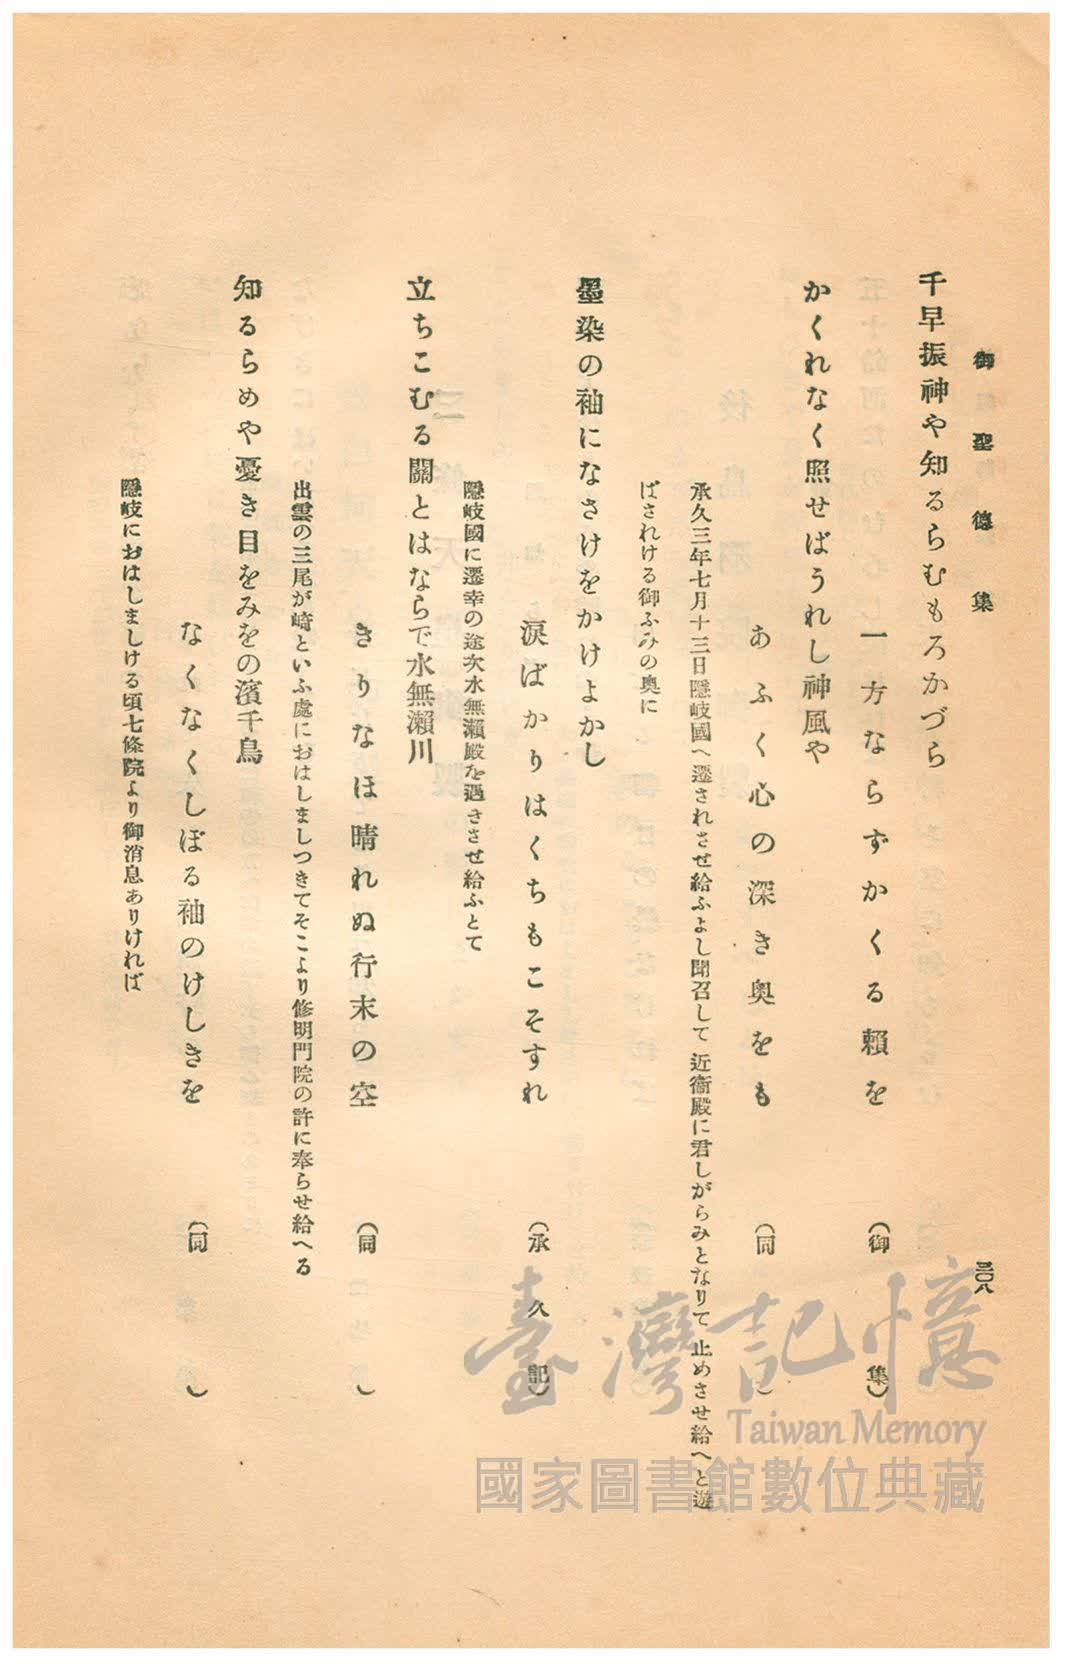 御聖德集
三〇八
千早振神や知るらむもろかづら
一方ならずかくる賴を（御集）
かくれなく照せばうれし神風や
あふく心の深き奥をも（同）
承久三年七月十三日隱岐國へ遷されさせ給ふよし聞召して 近衞殿に君しがらみとなりて 止めさせ給へと遊
ばされける御ふみの奥に
墨染の袖になさけをかけよかし
淚ばかりはくちもこそすれ（承久記）
隱岐國に遷幸の途次水無瀨殿を過ささせ給ふとて
立ちこむる關とはならで水無瀨川
きりなほ晴れぬ行末の空（同）
出雲の三尾が崎といふ處におはしましつきてそこより修明門院の許に奉らせ給へる
知るらめや憂き目をみをの濱千鳥
なくなくしぼる袖のけしきを（同）
隱岐におはしましける頃七條院より御消息ありければ
臺灣記憶
Taiwan Memory
國家圖書館數位典藏